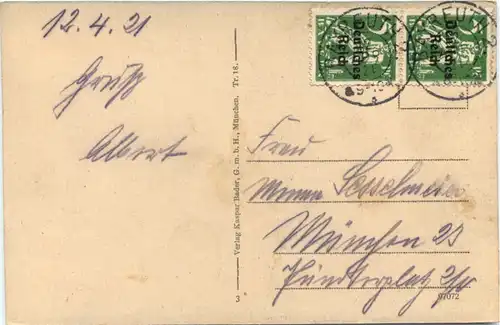 12.4.21
Gruß
Albert
Deutsches
Reich
Deutsches
Reich
Verlag Kaspar Bader, G. m. b. H., München. Tr. 18.
Frau
Sesselmeier
München 23
3
97072